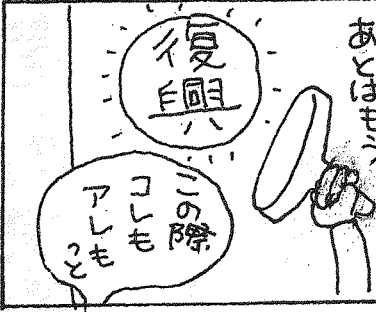 あとはもう、
復興
この際
コレも
アレも
っと